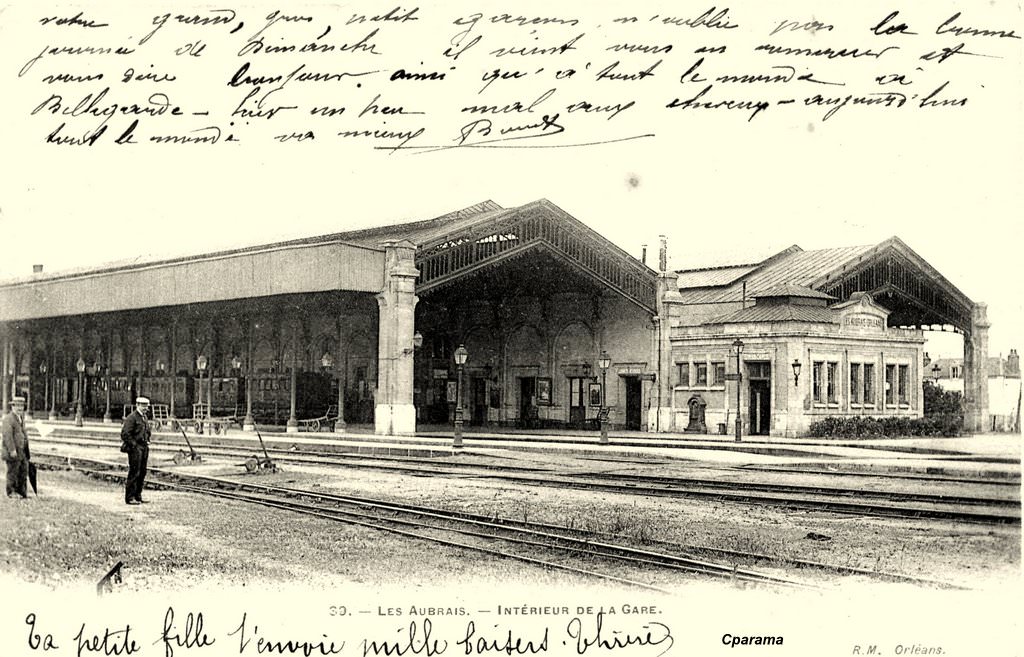 votre grand, gros petit garçon n'oublie pas la bonne
journée de Dimanche il vient vous en remercier et
vous dire bonjour ainsi qu'à tout le monde à
Bellegarde - hier un peu mal aux cheveux - aujourd'hui
tout le monde va mieux
LES AUBRAIS-ORLÉANS
30. — LES AUBRAIS. — INTÉRIEUR DE LA GARE.
Ta petite fille t'envoie mille baisers.
Cparama
R.M. Orléans.